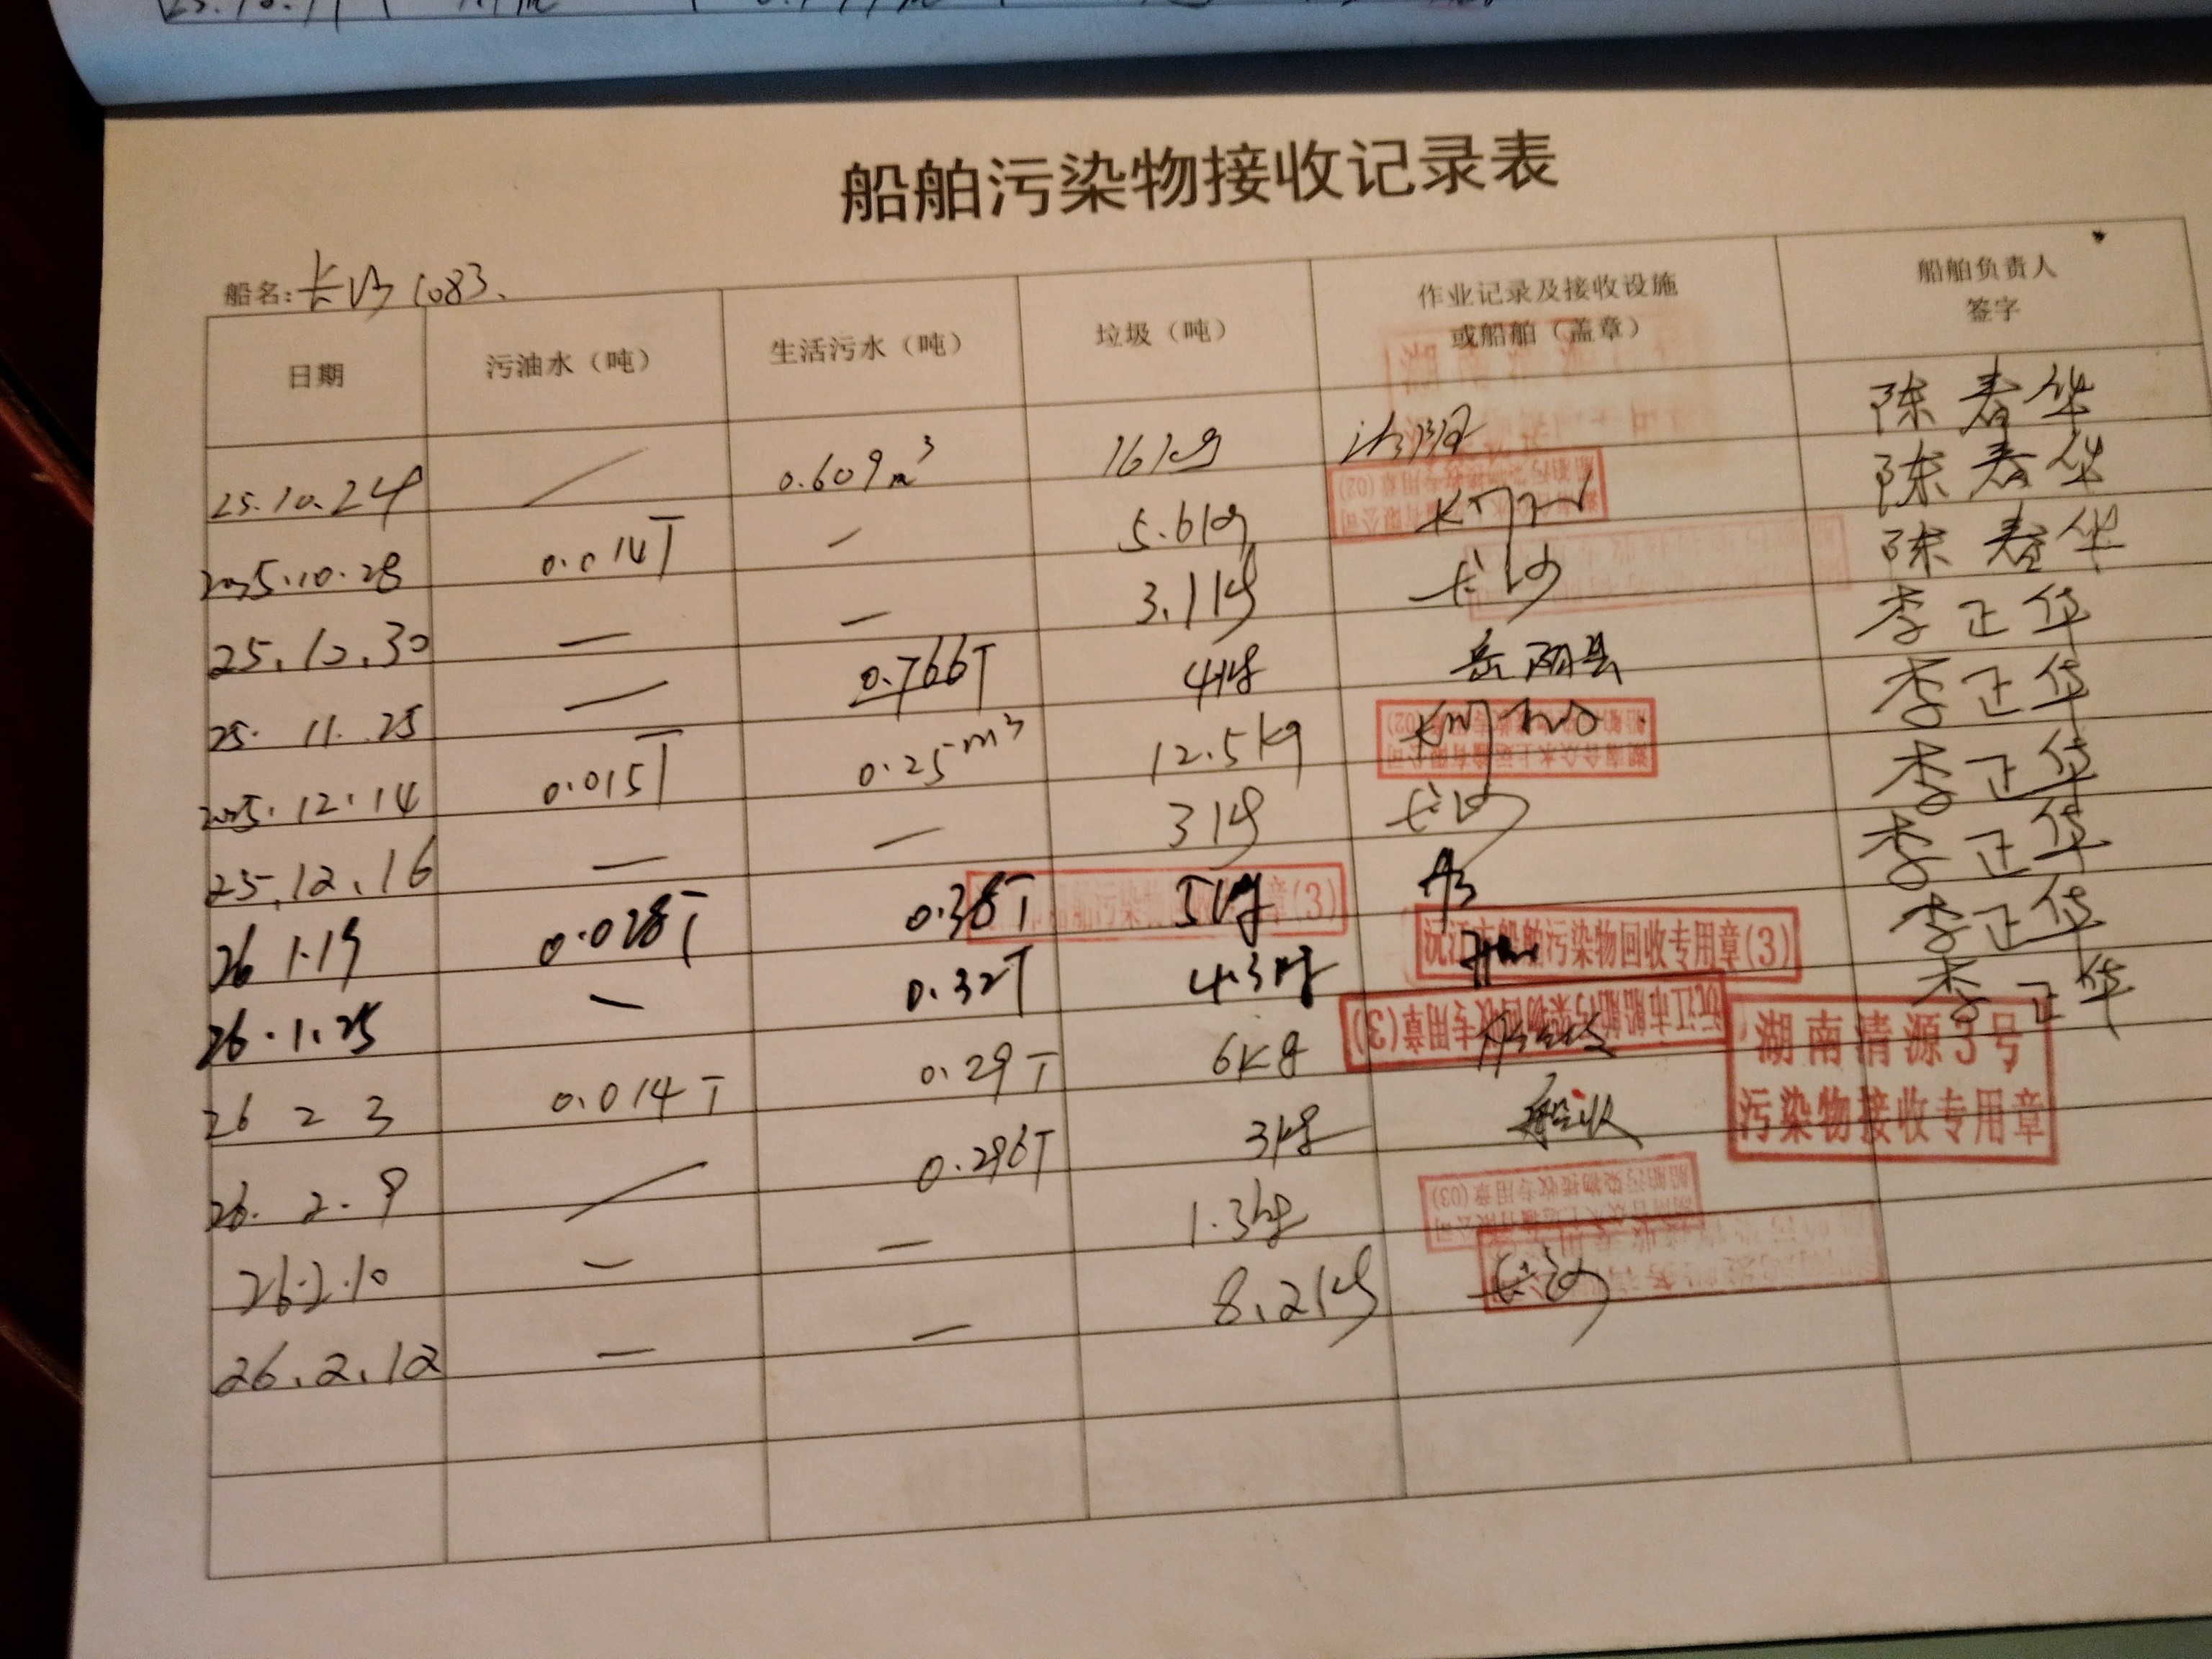 船舶污染物接收记录表
船名: 长沙1083.
日期 污油水（吨） 生活污水（吨） 垃圾（吨） 作业记录及接收设施或船舶（盖章） 船舶负责人签字
25.10.24 / 0.609m³ 16kg 陈春华
2025.10.28 0.014T — 5.6kg 陈春华
25.10.30 — — 3.1kg 长沙 陈春华
25.11.25 — 0.766T 4kg 岳阳县 李正华
2025.12.14 0.015T 0.25m³ 12.5kg 李正华
25.12.16 — — 3kg 长沙 李正华
26 1.19 0.028T 0.38T 5kg 李正华
船舶污染物 章(3)
26.1.25 — 0.32T 4.3kg 李正华
沅江市船舶污染物回收专用章(3)
26 2 3 0.014T 0.29T 6kg 李正华
沅江市船舶污染物回收专用章(3)
湖南清源3号
污染物接收专用章
26.2.9 / 0.296T 3kg 船收
26.2.10 — — 1.3kg
26.2.12 — — 8.2kg 长沙